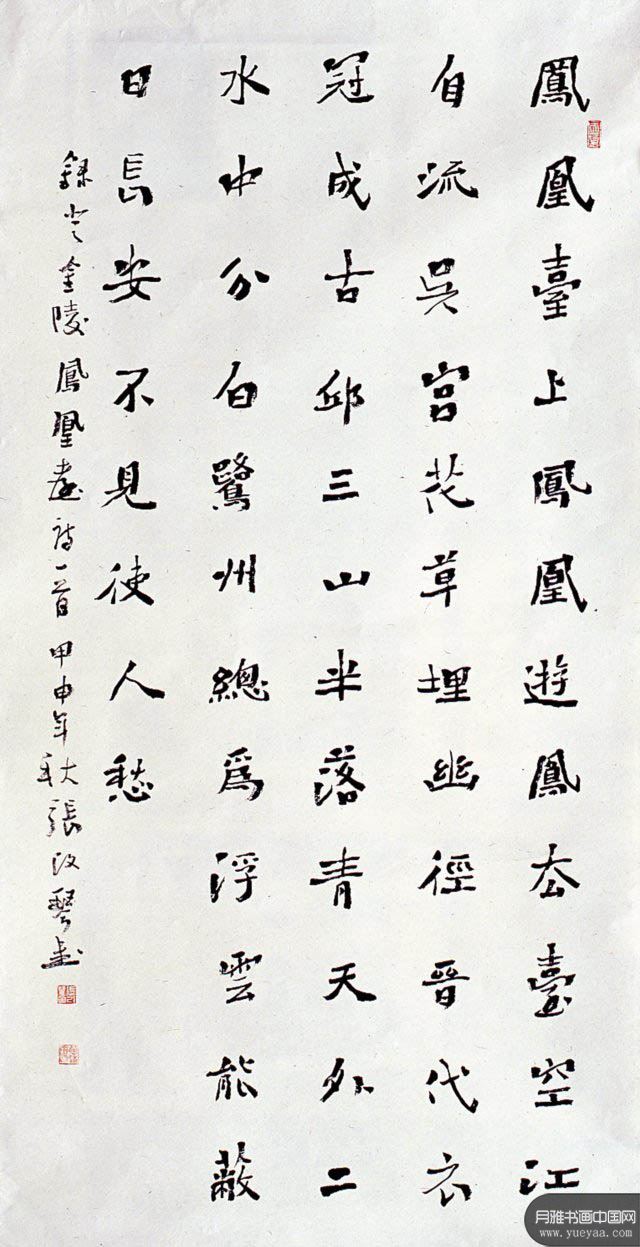 鳳凰臺上鳳凰遊鳳去臺空江
自流吳宮花草埋幽徑晉代衣
冠成古邱三山半落青天外二
水中分白鷺州總爲浮雲能蔽
日長安不見使人愁
錄登金陵鳳凰臺詩一首甲申年秋張琴書
月雅书画中国网
www.yueyaa.com